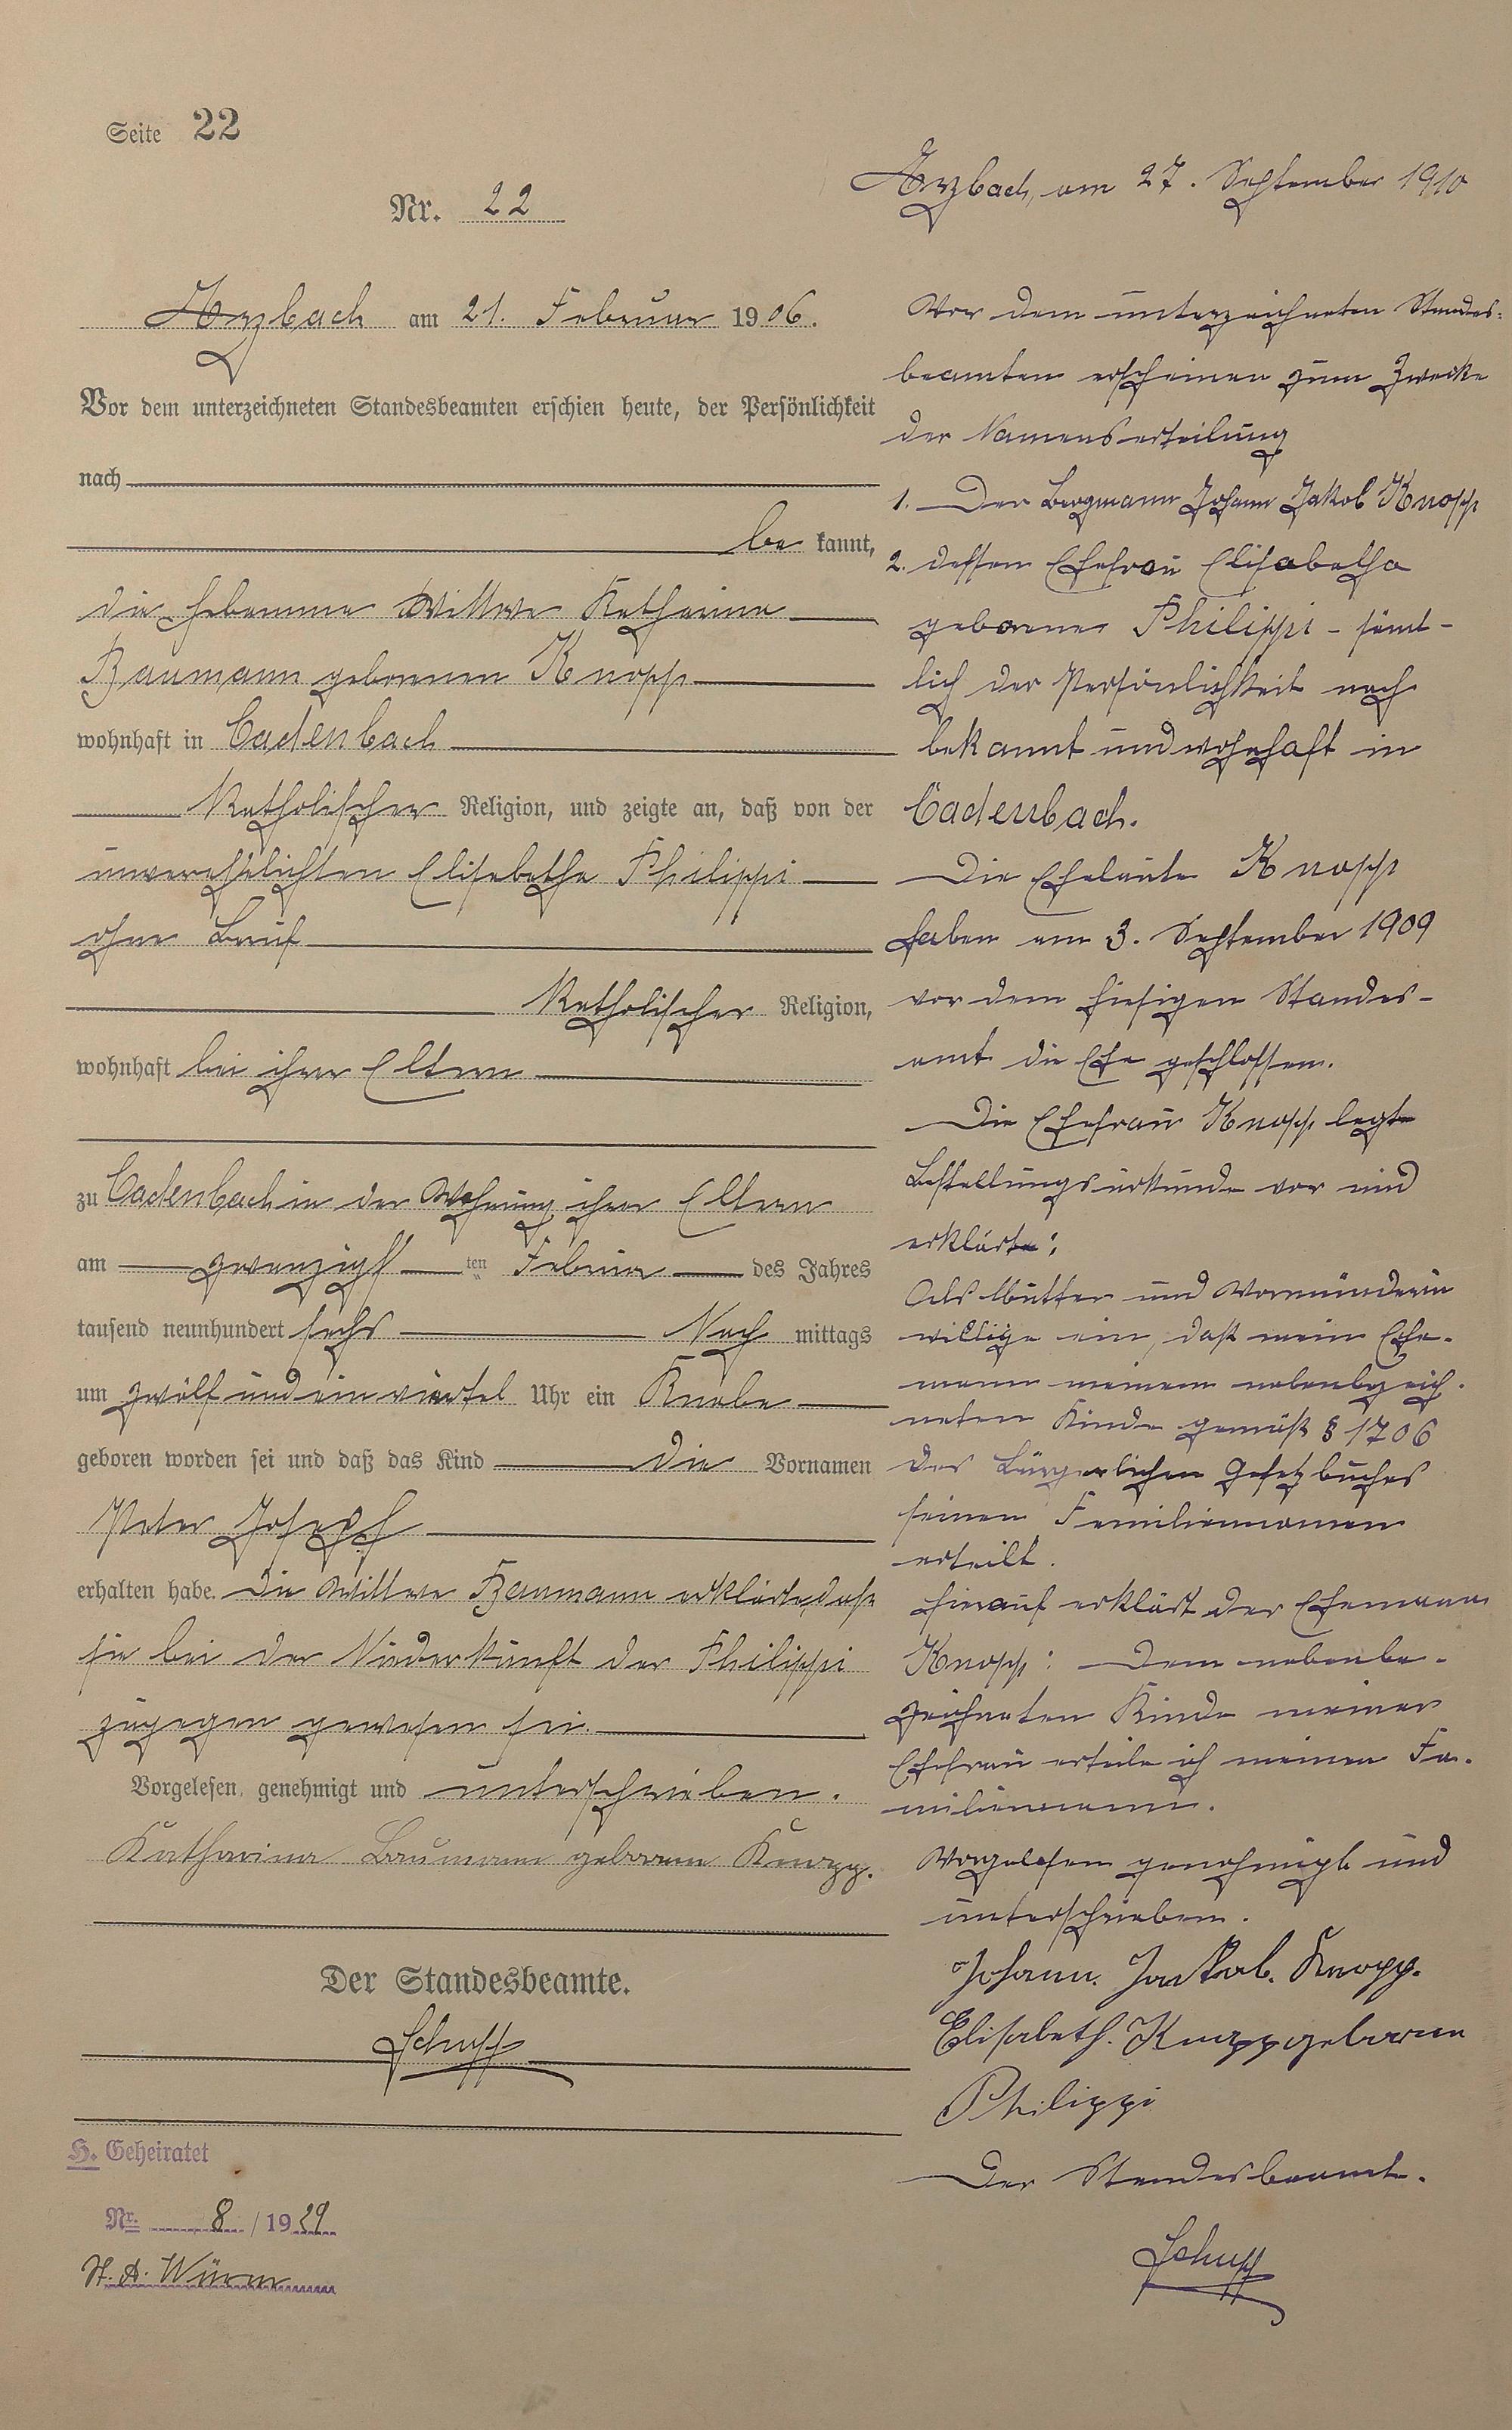 Seite 22
Nr. 22
Arzbach am 21. Februar 1906.
Vor dem unterzeichneten Standesbeamten erschien heute, der Persönlichkeit
nach
be kannt,
die Hebamme Wittwe Katharina
Baumann geborenen Knopp
wohnhaft in Cadenbach
Katholischer Religion, und zeigte an, daß von der
unverehelichten Elisabetha Philippi
ohne Beruf
Katholischer Religion,
wohnhaft bei ihren Eltern
zu Cadenbach in der Wohnung ihrer Eltern
am zwanzigst ten Februar des Jahres
tausend neunhundert sechs Nach mittags
um zwölf und ein viertel Uhr ein Knabe
geboren worden sei und daß das Kind die Vornamen
Peter Joseph
erhalten habe. Die Wittwe Baumann erklärte, dass
sie bei der Niederkunft der Philippi
zugegen gewesen sei.
Vorgelesen, genehmigt und unterschrieben.
Katharina Baumann geboren Knopp.
Der Standesbeamte.
Schupp
H. Geheiratet
Nr. 8 / 1929
St. A. Würm
Arzbach, am 27. September 1910
Vor dem unterzeichneten Standes-
beamten erscheinen zum Zwecke
der Namenserteilung
1. Der Bergmann Johann Jakob Knopp
2. dessen Ehefrau Elisabetha
geborener Philippi - sämt-
lich der Persönlichkeit nach
bekannt und wohnhaft in
Cadenbach.
Die Eheleute Knopp
haben am 3. September 1909
vor dem hiesigen Standes-
amt die Ehe geschlossen.
Die Ehefrau Knopp legte
Bestellungsurkunde vor und
erklärte:
Als Mutter und Vormünderin
willige ein, daß mein Ehe-
mann meinem nebenbezeich-
neten Kinde gemäß § 1706
des Bürgerlichen Gesetzbuches
seinen Familiennamen
erteilt.
Hierauf erklärt der Ehemann
Knopp: Dem nebenbe-
zeichneten Kinde meiner
Ehefrau erteile ich meinen Fa-
miliennamen.
Vorgelesen genehmigt und
unterschrieben.
Johann. Jakob. Knopp.
Elisabeth. Knopp geboren
Philippi
Der Standesbeamte.
Schupp